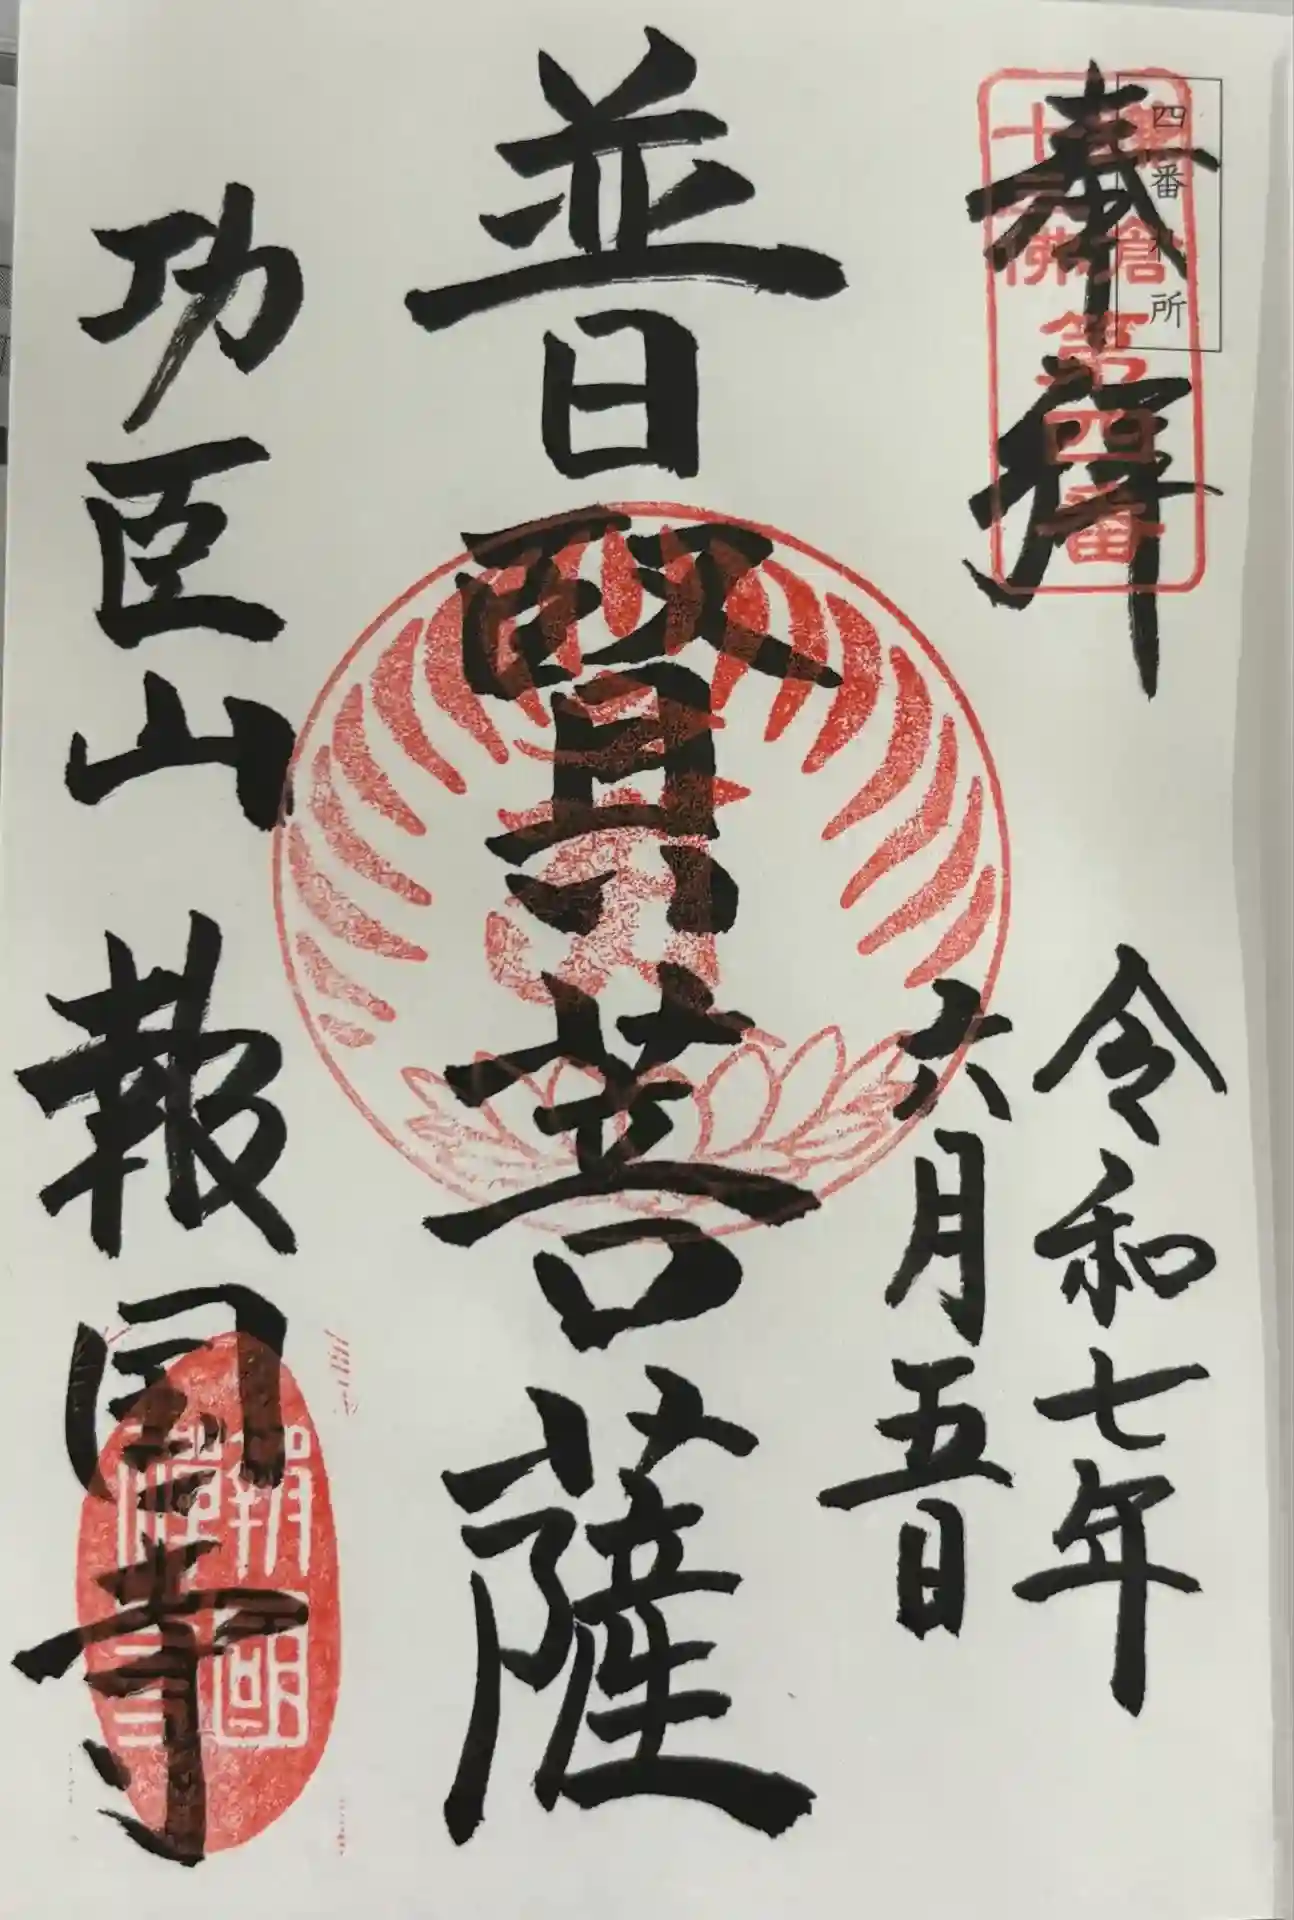 四番札所
奉拝
鎌倉
十三佛
第四番
令和七年
六月五日
普賢菩薩
功臣山 報国寺